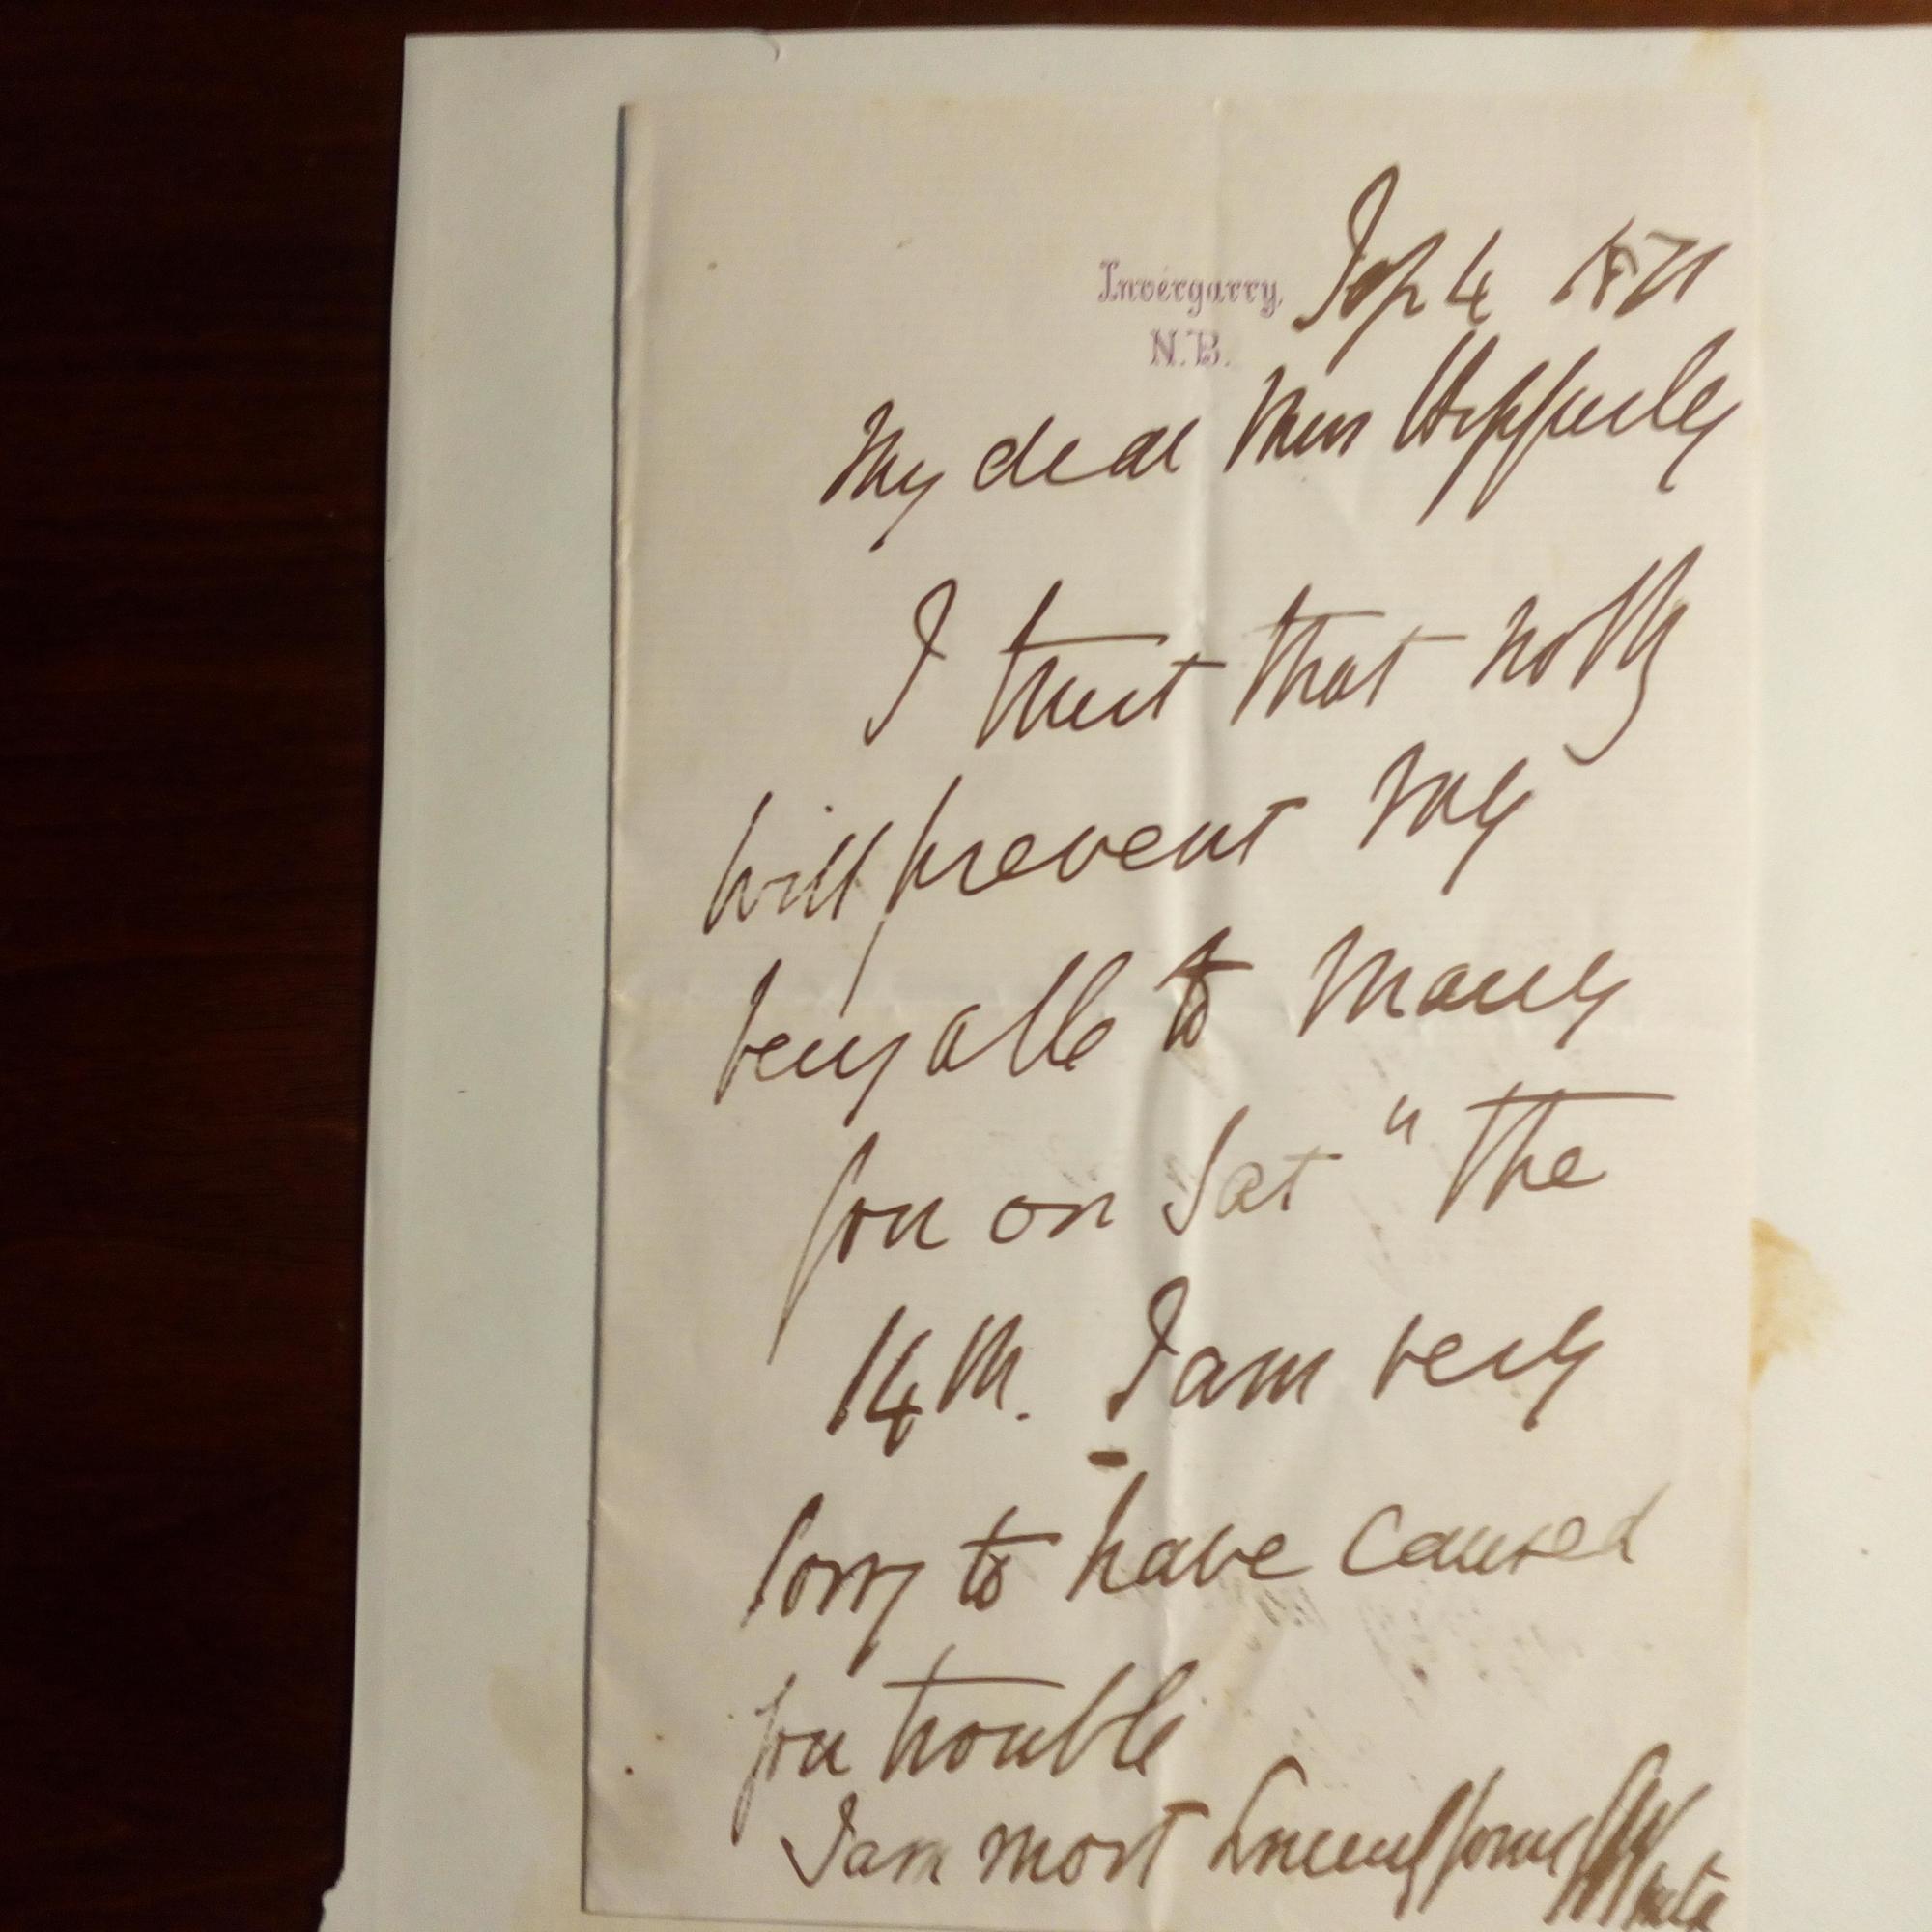 Invergarry,
N.B.
Sep 4 1871
My dear Miss
I trust that nothg
will prevent my
being able to marry
you on Sat" the
14th. I am very
sorry to have caused
you trouble
I am most sincerely yours